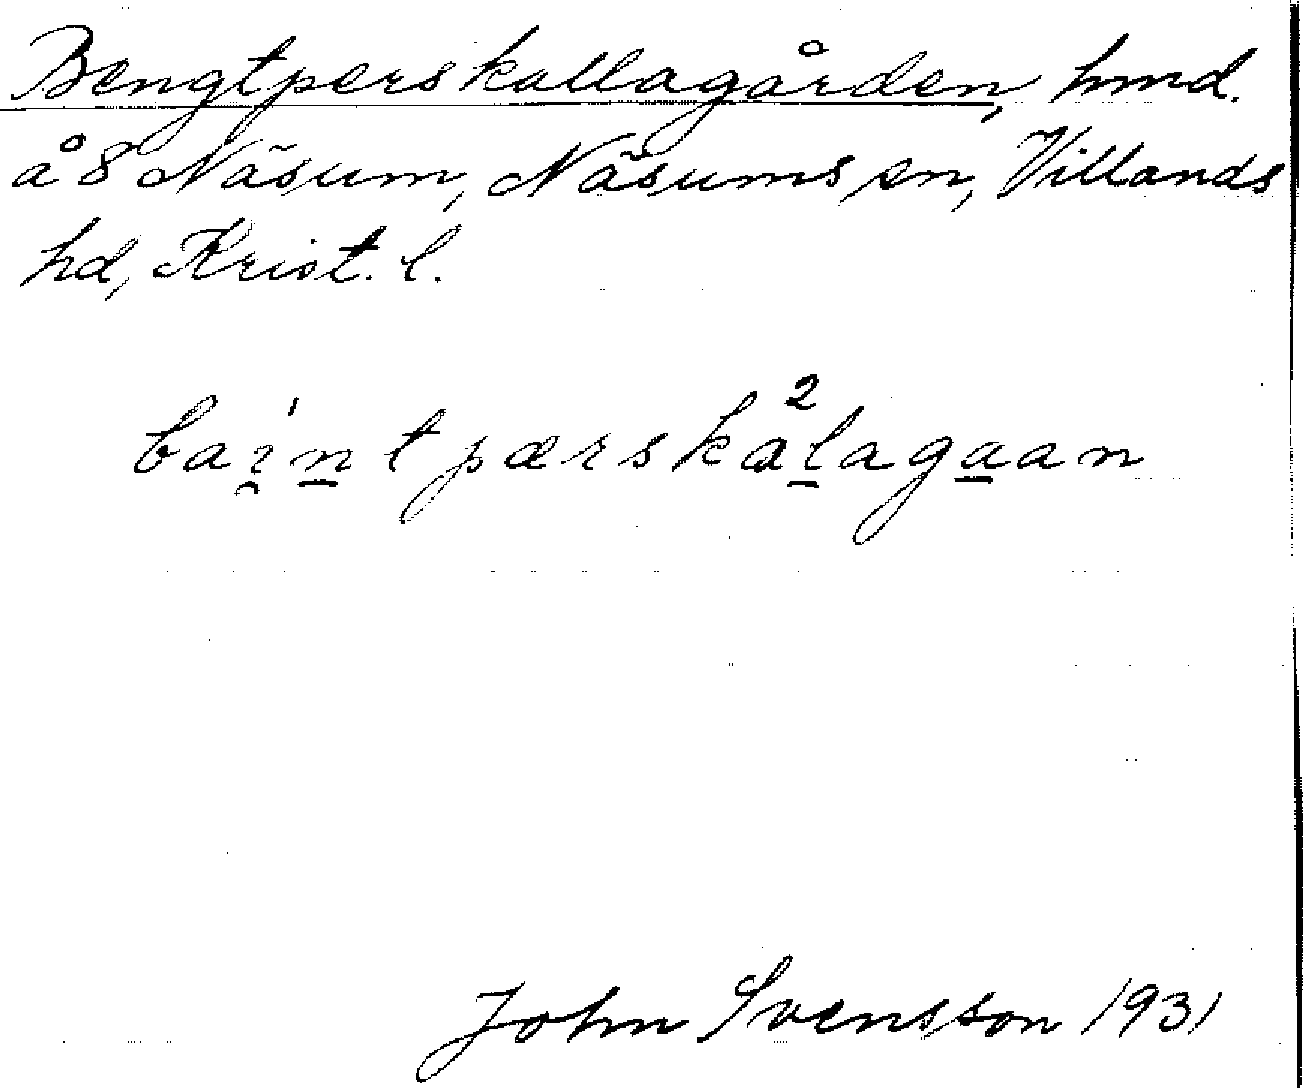 Bengtperskallagården, hmd.
å 8 Näsum, Näsums sn, Villands
hd, Krist. l.
bai̯'n̲tpærskal̲²aga̲an
John Svensson 1931